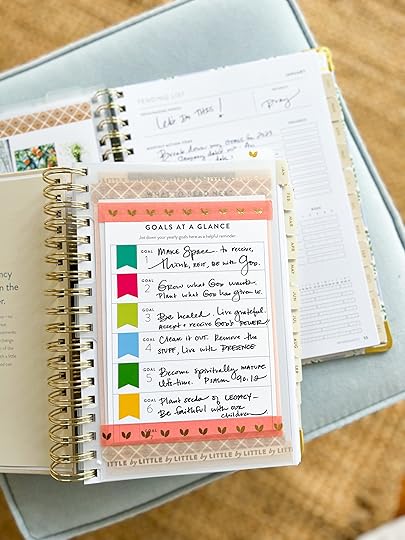 JANUARY
TENDING LIST
Let's Do THIS!
pray
Break down my GOALS
Company
WHAT TO READ NEXT
GOALS AT A GLANCE
Jot down your yearly goals here as a helpful reminder.
GOAL 1 MAKE Space to receive,
Think, rest, be with God.
GOAL 2 Grow what God wants.
Plant what God has given us.
GOAL 3 Be healed. Live grateful.
Accept + receive God's
GOAL 4 Clean it out. Remove the
STUFF, Live with PRESENCE
GOAL 5 Become spiritually MATURE
life-time. Psalm 90:12
GOAL 6 Plant seeds of LEGACY—
Be faithful with our
children
GOAL
ITTLE by LITTLE by LITTLE by LITTLE by LITTL
ncy
n the
r.